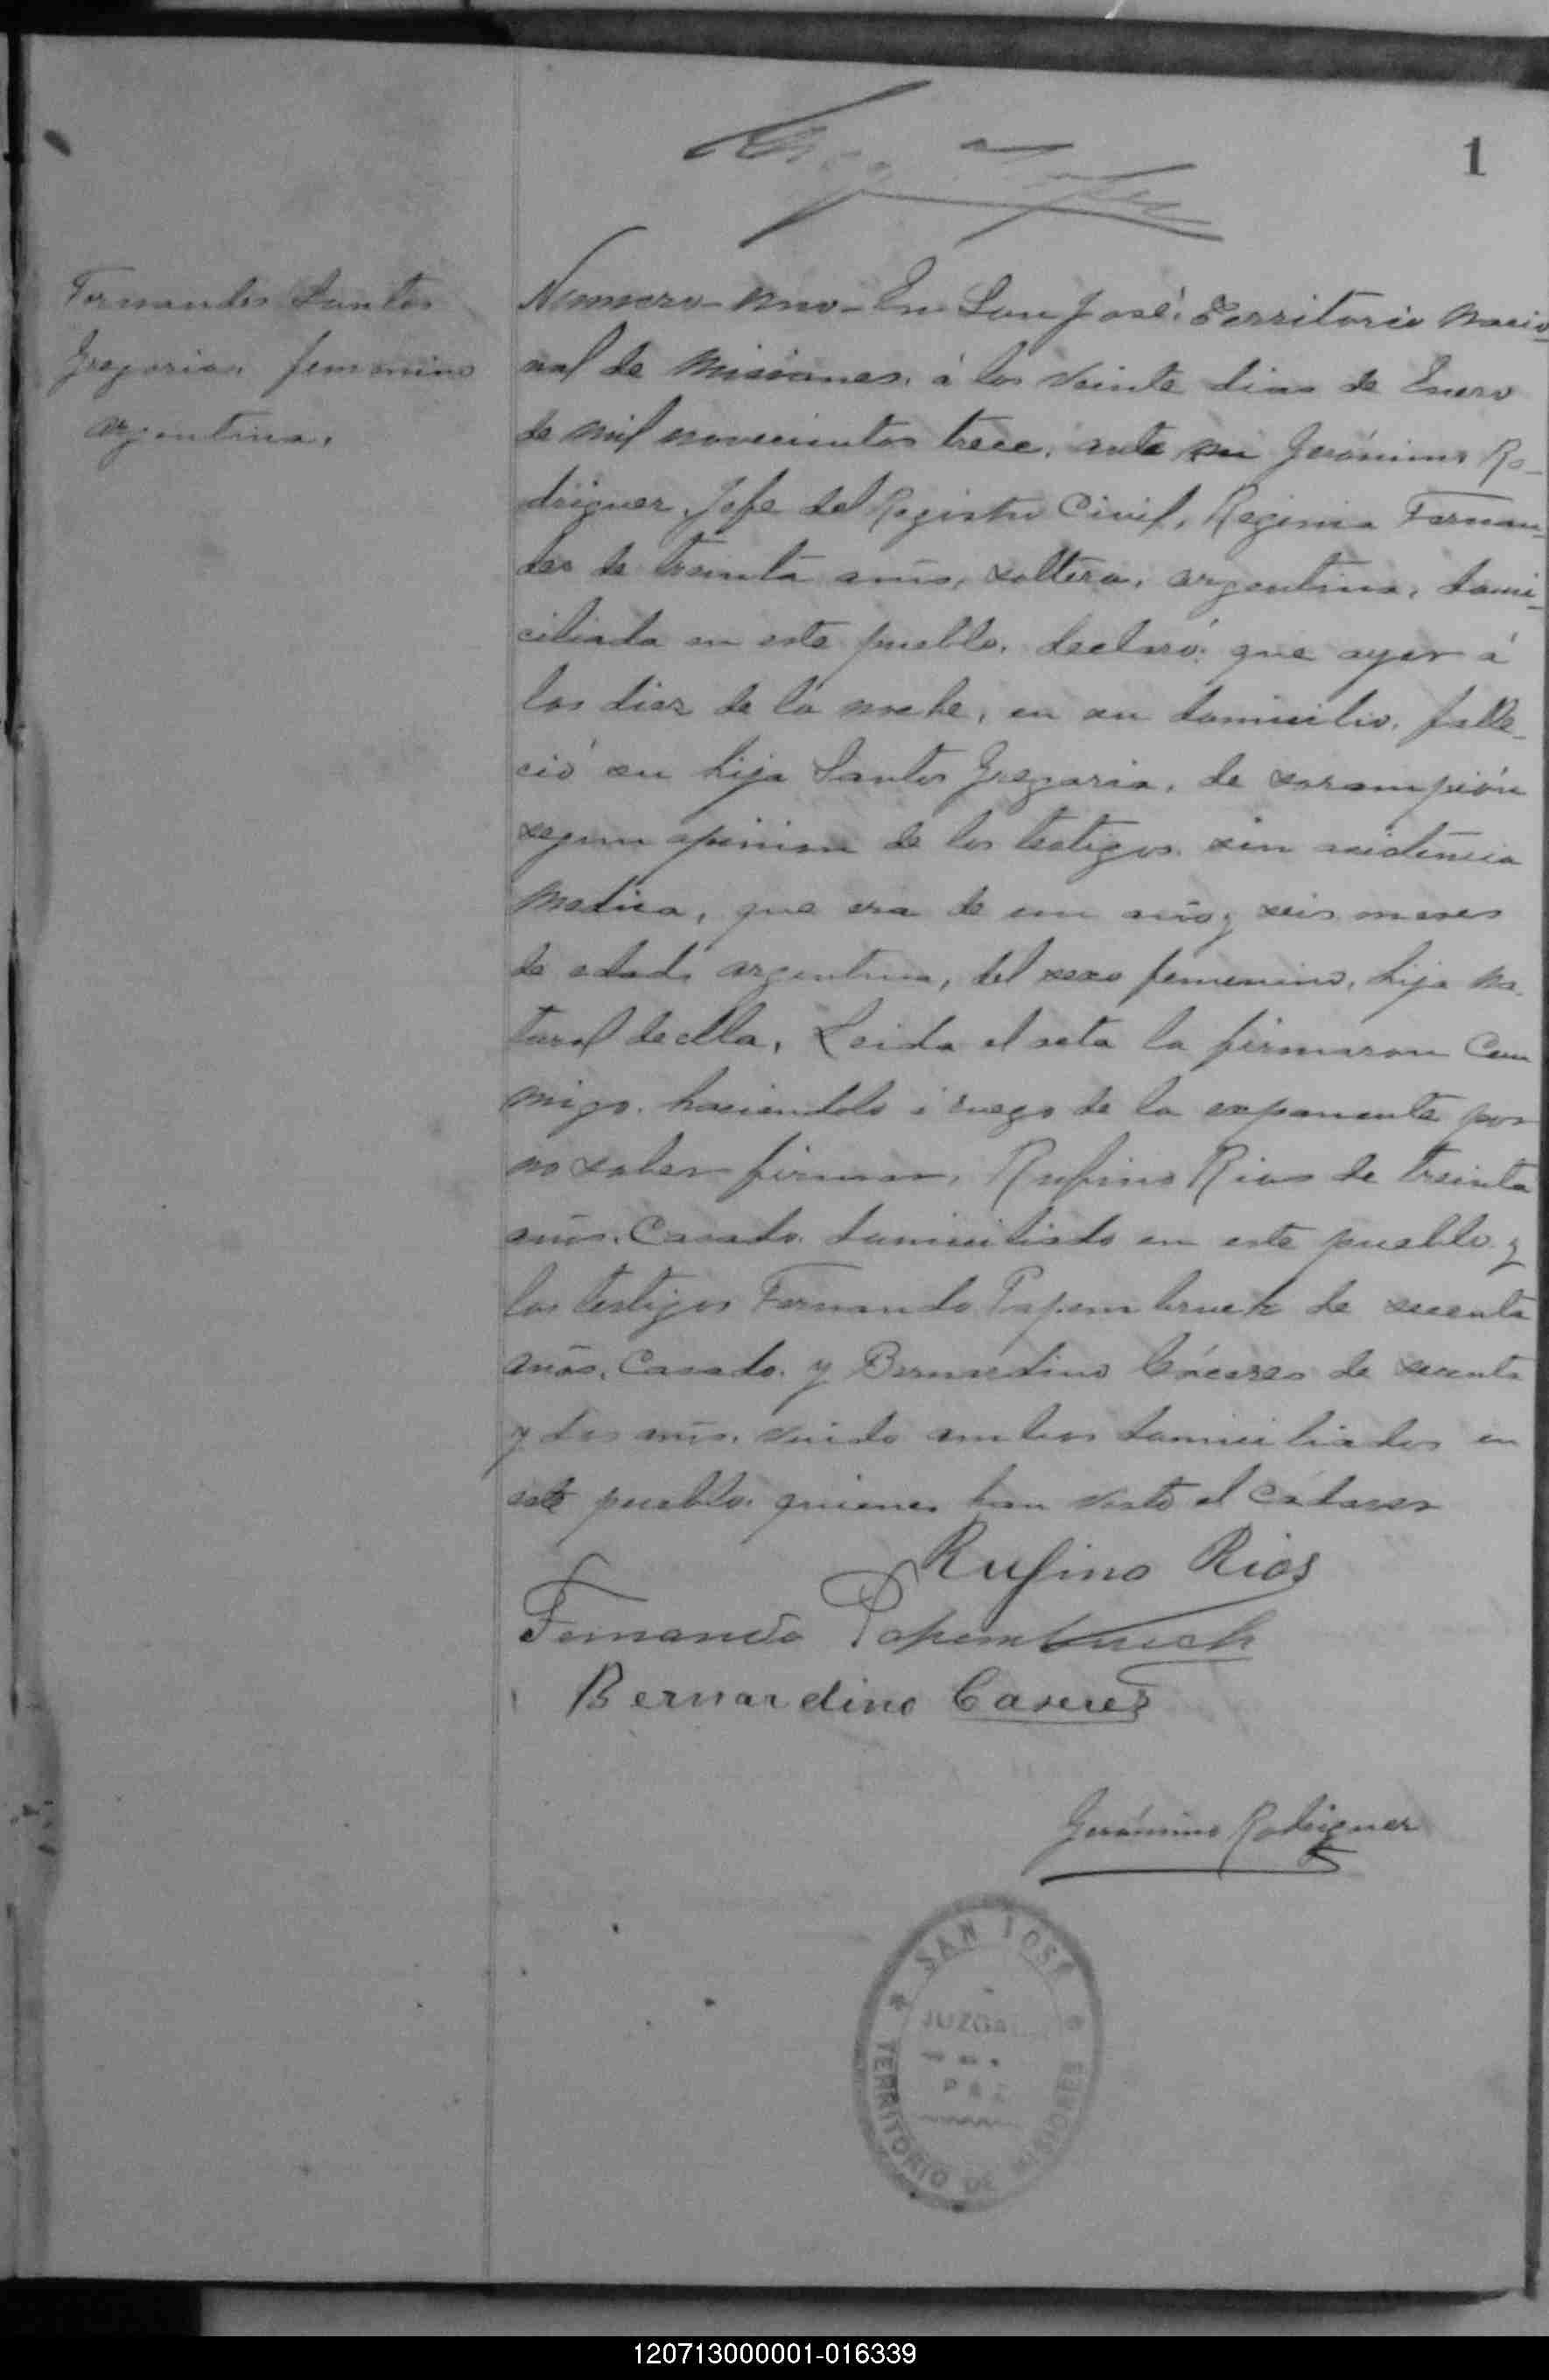 1
Fernandes Santos
Gregoria, femenino
argentina.
Numero uno - En San José, Territorio Nacio
nal de Misiones, á los veinte dias de Enero
de mil novecientos trece, ante mi Jerónimo Ro-
driguez, Jefe del Registro Civil, Regina Fernan-
des de treinta años, soltera, argentina, domi-
ciliada en este pueblo, declaró: que ayer á
las diez de la noche, en su domicilio, falle-
ció su hija Santos Gregoria, de sarampión
segun opinion de los testigos, sin asistencia
medica, que era de un año y seis meses
de edad, argentina, del sexo femenino, hija na-
tural de ella, Leida el acta la firmaron Con
migo, haciendolo á ruego de la exponente por
no saber firmar, Rufino Rios de treinta
años, Casado, domiciliado en este pueblo y
los testigos Fernando Papembruck de
años, Casado, y Bernardino Cáceres de
y dos años, viudo ambos domiciliados en
este pueblo, quienes han visto el Cadaver
Rufino Rios
Fernando Papembruch
Bernardino Caseres
Gerónimo Rodriguez
SAN JOSE
JUZGA
PAZ
TERRITORIO DE MISIONES
120713000001-016339